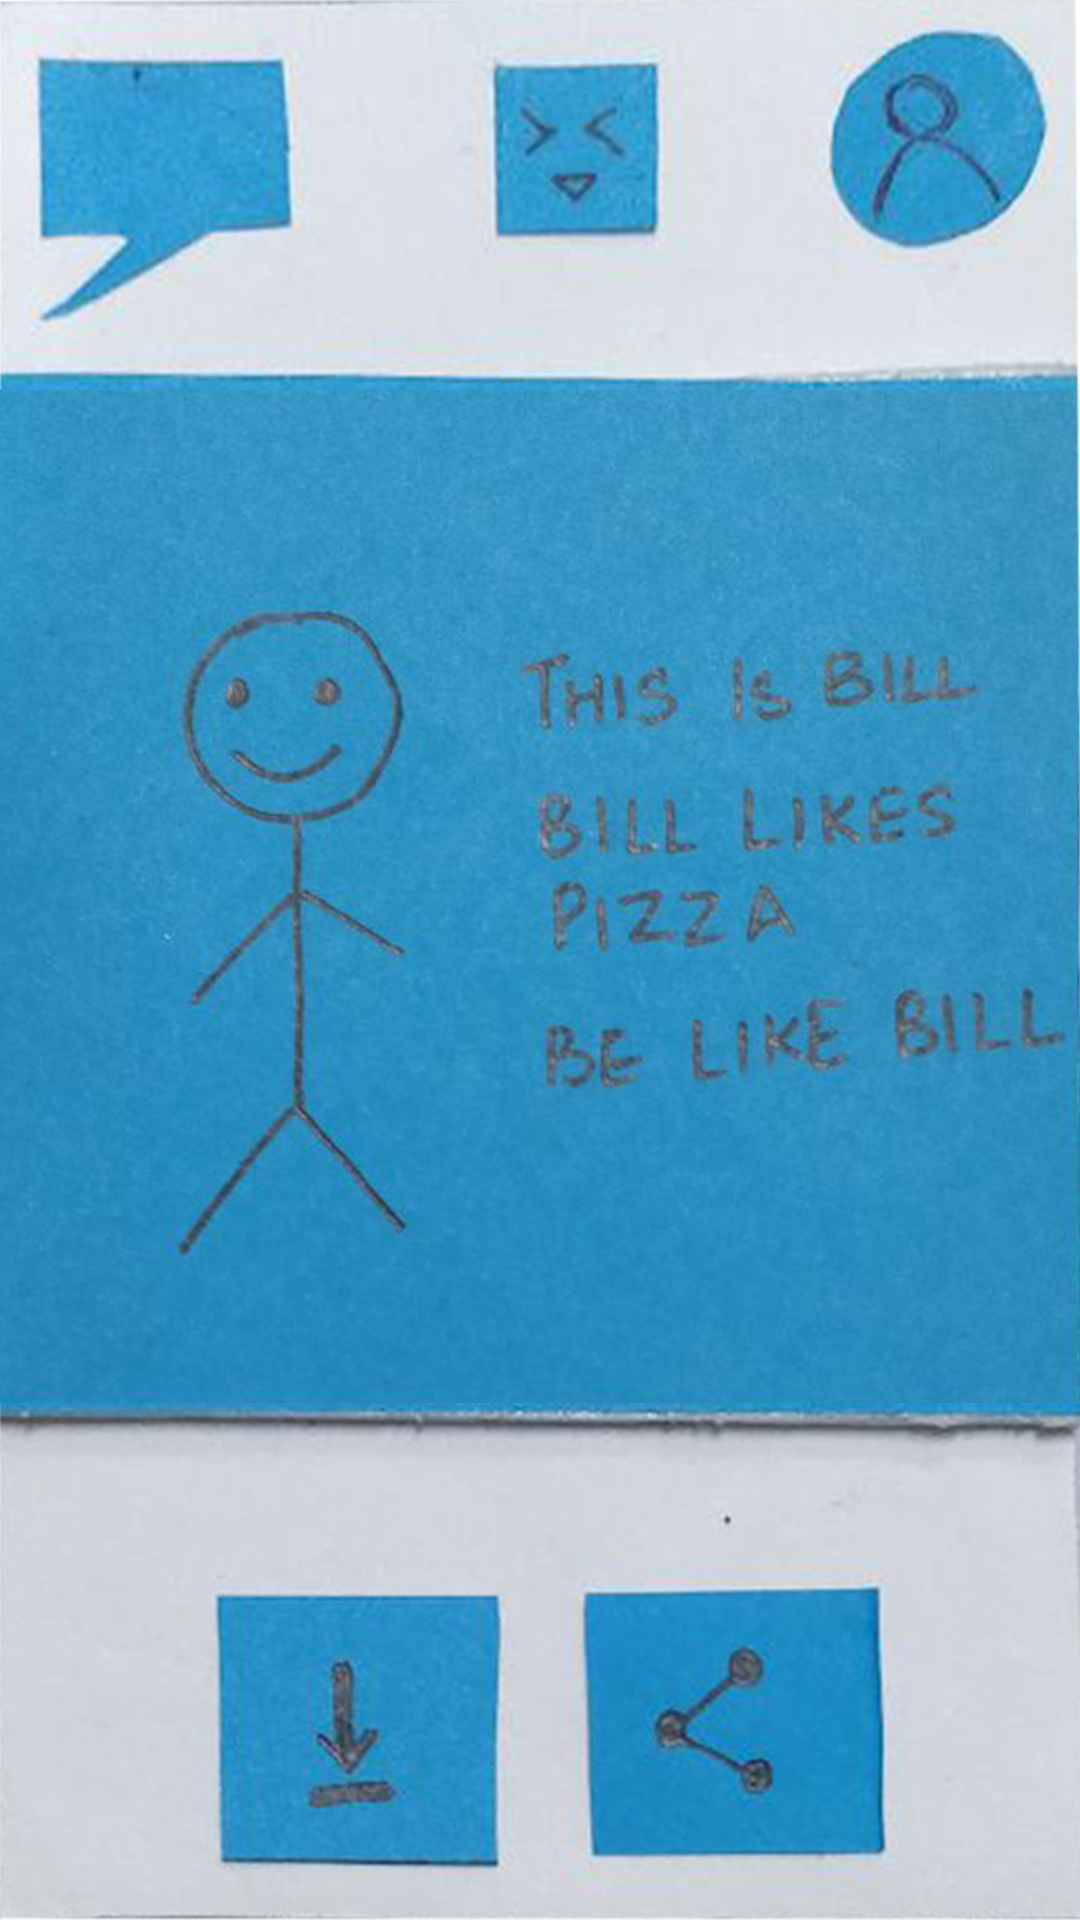 THIS IS BILL
BILL LIKES
PIZZA
BE LIKE BILL